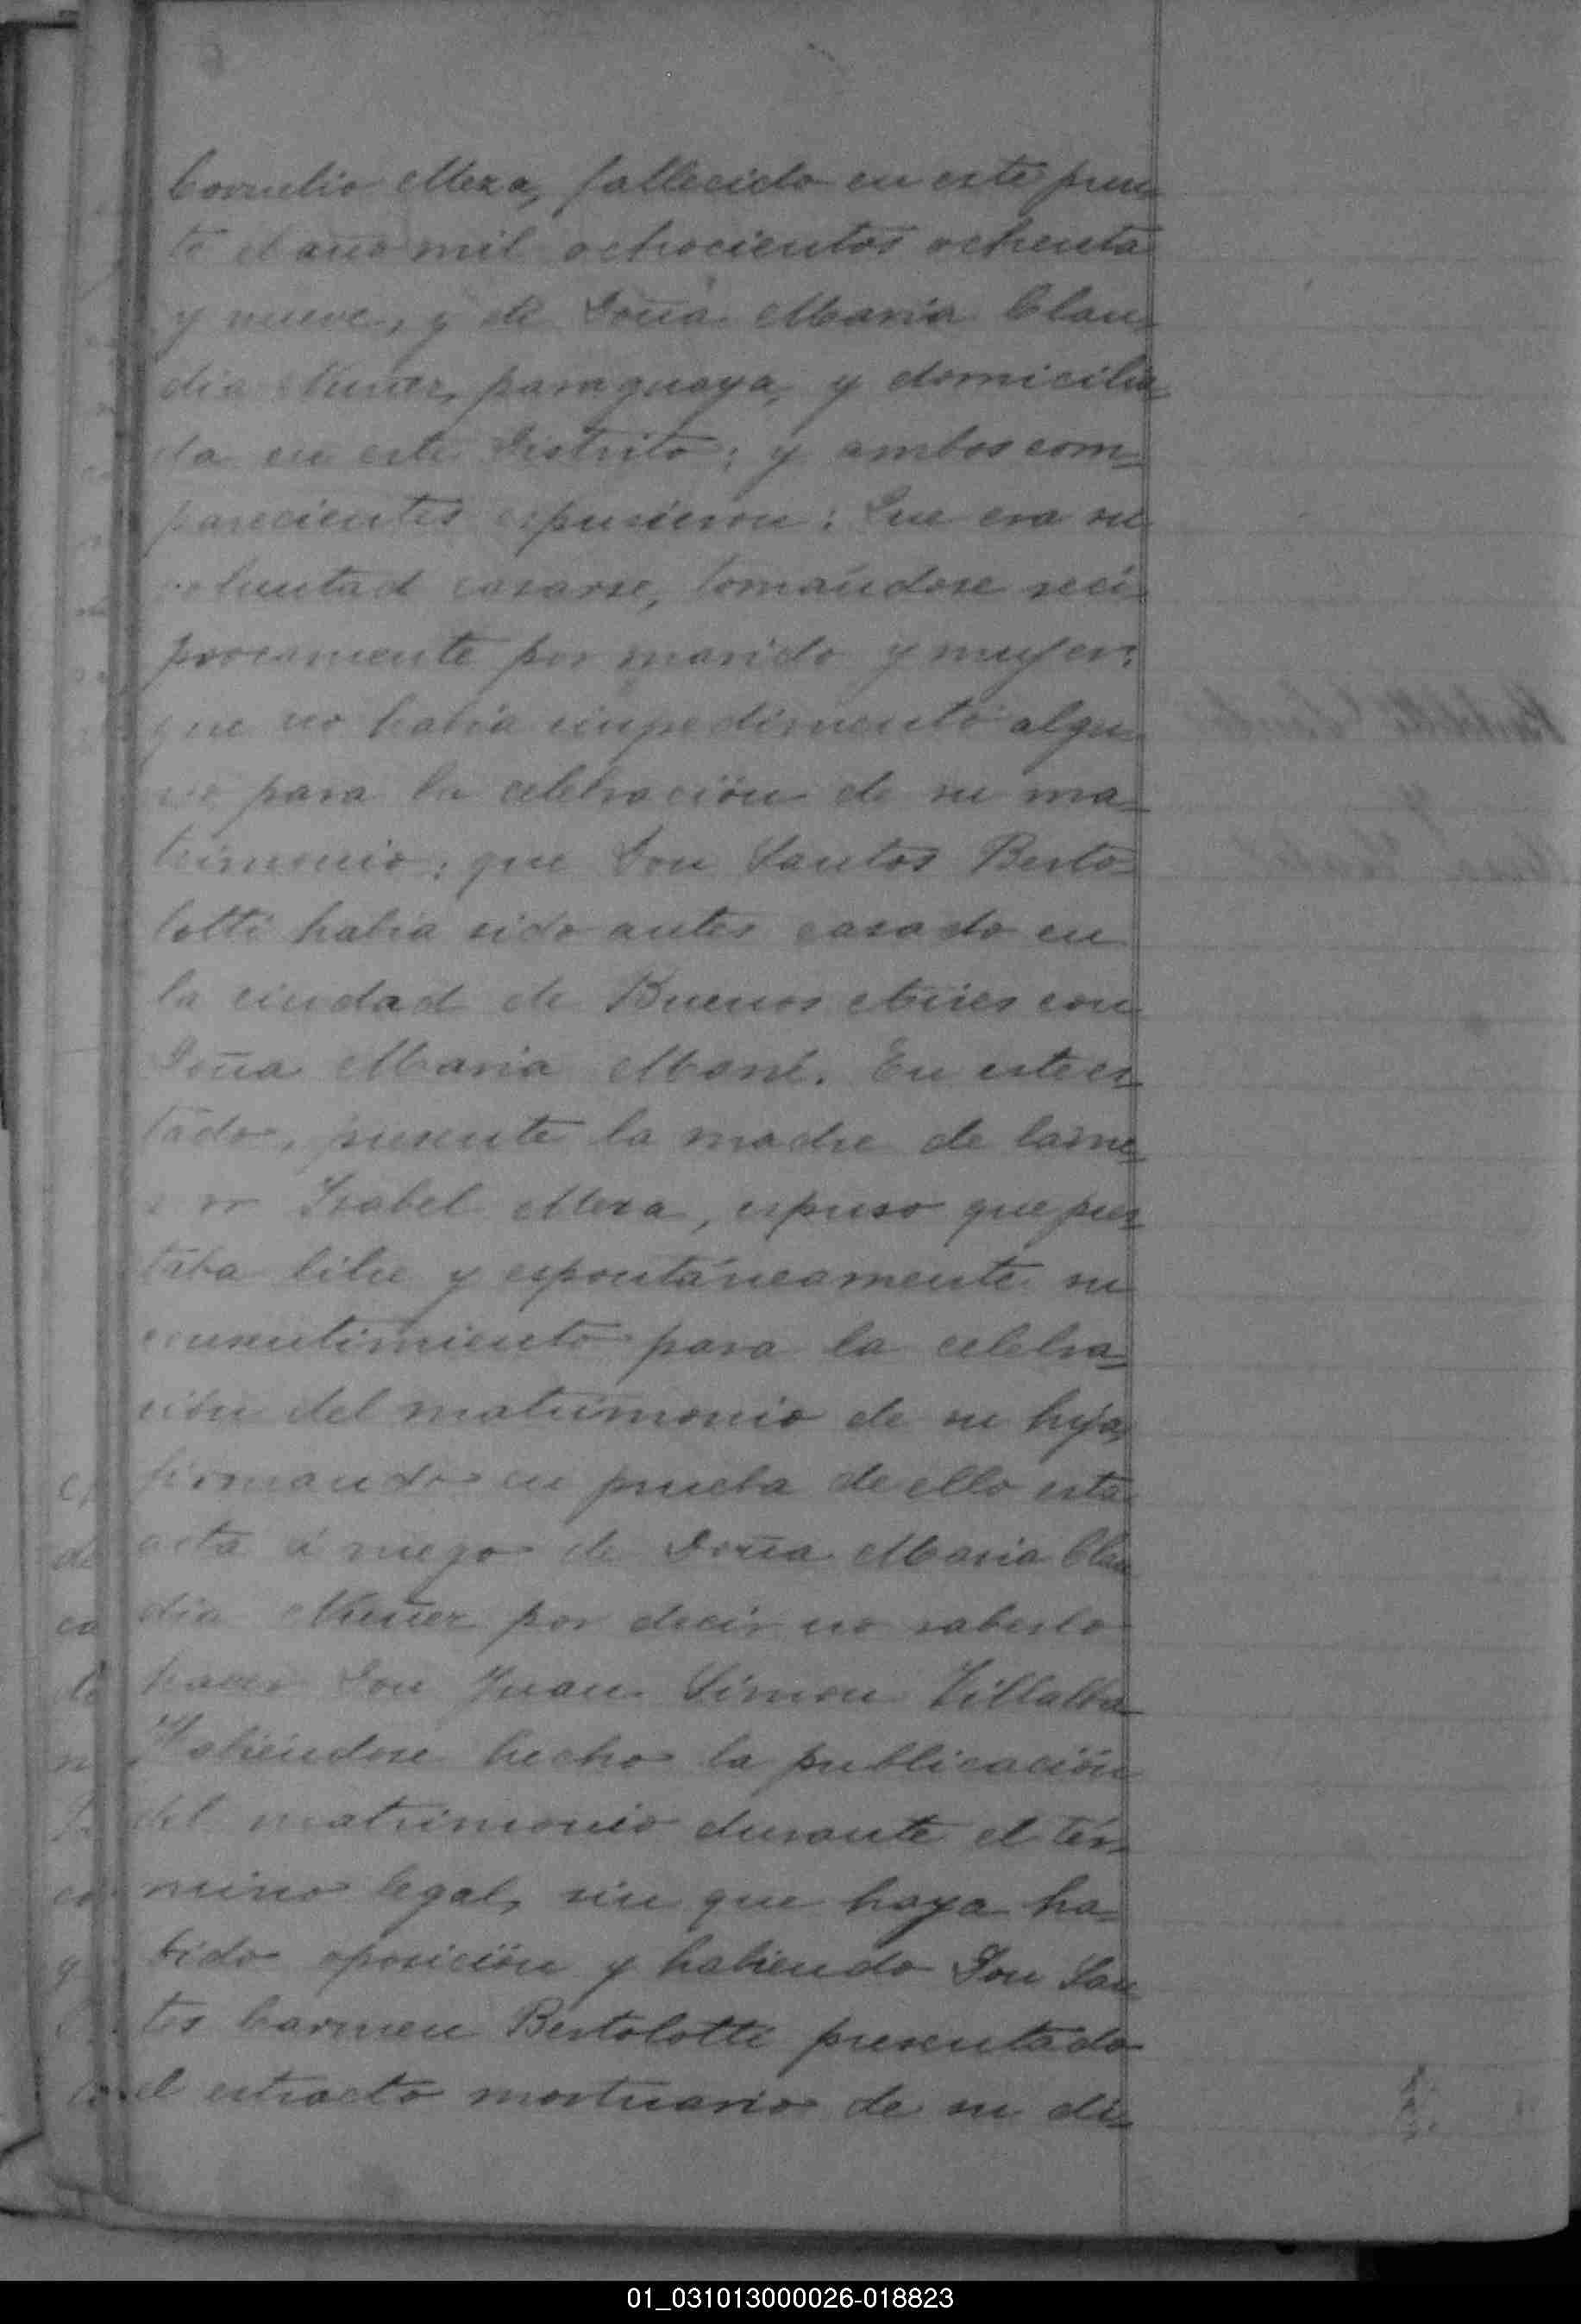 Cornelio Meza, fallecido en este pun-
to el año mil ochocientos ochenta
y nueve, y de Doña Maria Clau-
dia Nuñez, paraguaya, y domicilia-
da en este Distrito; y ambos com-
parecientes espusieron: Que era su
voluntad casarse, tomándose reci-
procamente por marido y mujer;
que no había impedimento algu-
no para la celebración de su ma-
trimonio; que Don Santos Berto-
lotti había sido antes casado en
la ciudad de Buenos Aires con
Doña Maria. En este es-
tado, presente la madre de la me-
nor Isabel Meza, espuso que pres-
taba libre y espontáneamente su
consentimiento para la celebra-
ción del matrimonio de su hija,
firmando en prueba de ello esta
acta á ruego de Doña Maria Clau
dia Nuñez por decir no saberlo
hacer Don Juan Simon Villalba
Habiéndose hecho la publicación
del matrimonio durante el tér-
mino legal, sin que haya ha-
bido oposición y habiendo Don San
tos Carmen Bertolotti presentado
el estracto mortuorio de su di-
01_031013000026-018823